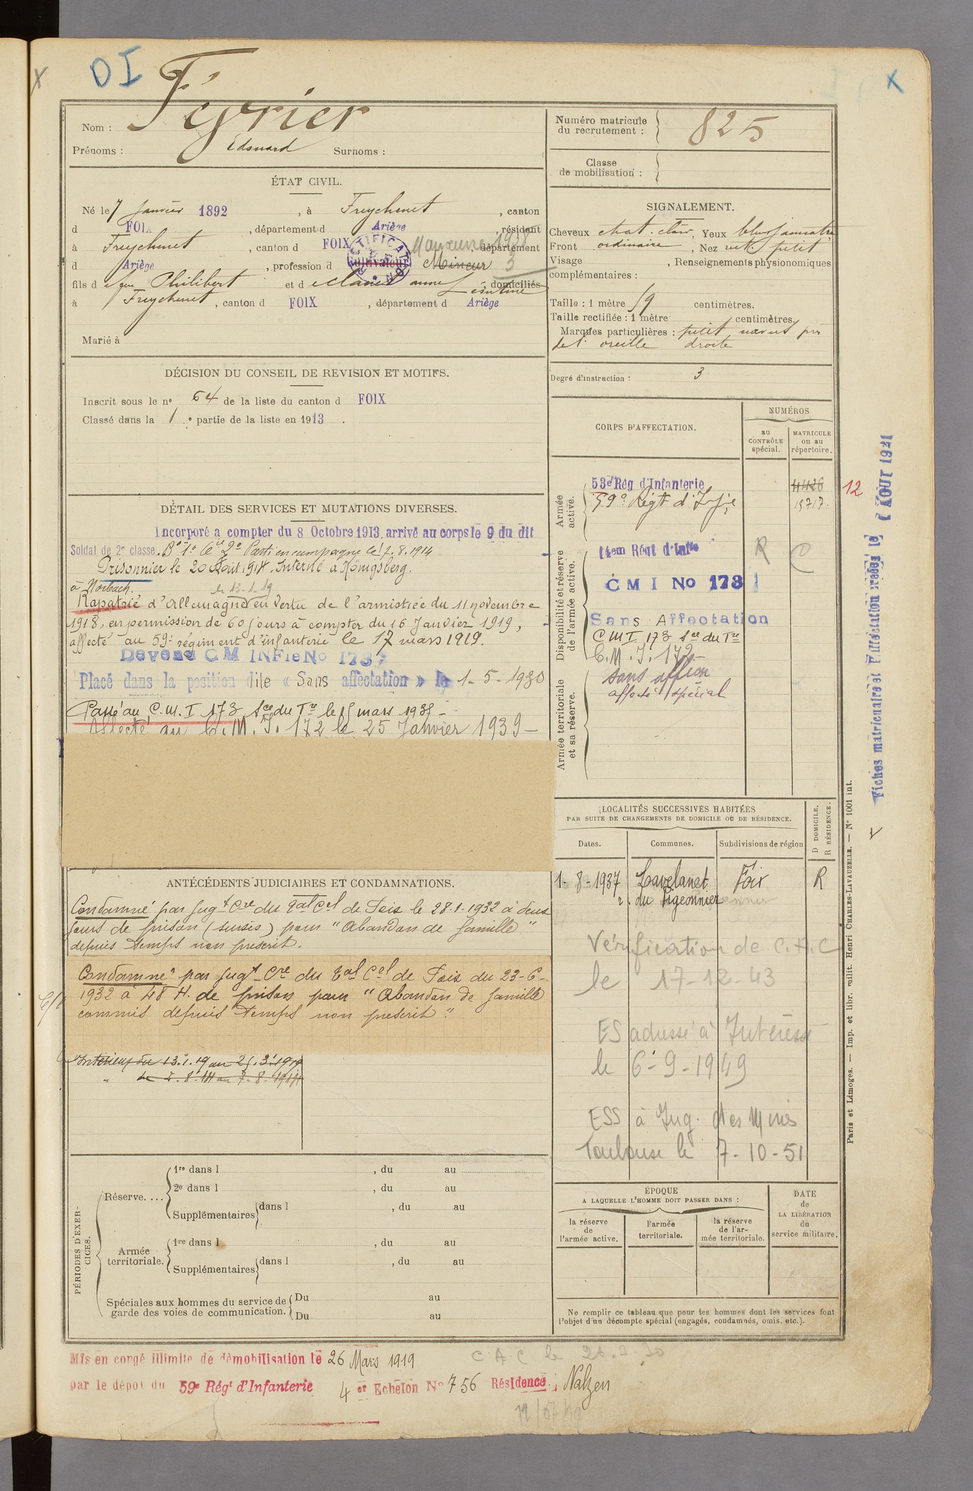 DI
Nom : Février
Prénoms : Edouard Surnoms :
ÉTAT CIVIL.
Né le 7 Janvier 1892, à Freychenet, canton
d FOIX, département d Ariège, résident
à Freychenet, canton d FOIX, département
Manœuvre 1938
d Ariège, profession d Cultivateur Mineur 3
RECTIFICATION
fils d feu Philibert et d domiciliés
à Freychenet, canton d FOIX, département d Ariège
Marié à
DÉCISION DU CONSEIL DE REVISION ET MOTIFS.
Inscrit sous le n° 64 de la liste du canton d FOIX
Classé dans la 1e partie de la liste en 1913.
DÉTAIL DES SERVICES ET MUTATIONS DIVERSES.
Incorporé a compter du 8 Octobre 1913 arrivé au corps le 9 du dit
Soldat de 2e classe. Parti en campagne le 7.8.1914
Prisonnier le 20 Août 1918. Interné à Königsberg.
à Morbach. le 13.1.19
Rapatrié d'Allemagne en vertu de l'armistice du 11 novembre
1918, en permission de 60 jours à compter du 16 Janvier 1919,
affecté au 59e régiment d'infanterie le 17 mars 1919.
Devenu C M INFie No 173
Placé dans la position dite « Sans affectation » le 1-5-1930
Passé au C.M.I 173 1er du Tre le 15 mars 1938 -
Affecté au C.M.I. 172 le 25 Janvier 1939 -
ANTÉCÉDENTS JUDICIAIRES ET CONDAMNATIONS.
Condamné par jugt Cre du Tal Cel de Foix le 28.1.1932 à deux
jours de prison (sursis) pour "Abandon de famille"
depuis temps non prescrit.
Condamné par jugt Cre du Tal Cel de Foix du 23-6-
1932 à 48 H. de prison pour "Abandon de famille
commis depuis temps non prescrit".
Intérieur du 13.1.19 au 25.3.1919
" de 2.8.14 au 7.8.1914
PÉRIODES D'EXERCICES.
Réserve.... 1re dans l , du au
2e dans l , du au
Supplémentaires dans l , du au
Armée territoriale. 1re dans l , du au
Supplémentaires dans l , du au
Spéciales aux hommes du service de Du au
garde des voies de communication. Du au
Mis en congé illimité de démobilisation le 26 Mars 1919
par le dépôt du 59e Régt d'Infanterie 4 er Echelon No 756 Résidence : Nalzen
C A C le
Numéro matricule du recrutement : 825
Classe de mobilisation :
SIGNALEMENT.
Cheveux chat. clair, Yeux bleus
Front ordinaire, Nez rect. petit
Visage , Renseignements physionomiques
complémentaires :
Taille : 1 mètre 59 centimètres.
Taille rectifiée : 1 mètre centimètres.
Marques particulières : petit nævus près
de l'oreille droite
Degré d'instruction : 3
CORPS D'AFFECTATION.
NUMÉROS
au CONTRÔLE spécial.
MATRICULE ou au répertoire.
Armée active.
53e Rég d'Infanterie
59e Régt d'Infie
12
Disponibilité et réserve de l'armée active.
R C
C M I No 173
Sans Affectation
C.M.I. 173 1er du Tre
C.M.I. 172 -
Armée territoriale et sa réserve.
sans affon
affecté spécial
LOCALITÉS SUCCESSIVES HABITÉES
PAR SUITE DE CHANGEMENTS DE DOMICILE OU DE RÉSIDENCE.
Dates. Communes. Subdivisions de région D DOMICILE. R RÉSIDENCE.
1-8-1937 Lavelanet Foix R
r. du Pigeonnier
Vérification de C.A.C
le 17-12-43
ES adressé à Intéressé
le 6-9-1949
ESS à Ing. des Mines
Toulouse le 7-10-51
ÉPOQUE
A LAQUELLE L'HOMME DOIT PASSER DANS :
la réserve de l'armée active.
l'armée territoriale.
la réserve de l'armée territoriale.
DATE de LA LIBÉRATION du service militaire.
Ne remplir ce tableau que pour les hommes dont les services font
l'objet d'un décompte spécial (engagés, condamnés, omis, etc.).
Fiches matriculaire et d'Affectation créées le AOUT 1921
Paris et Limoges. — Imp. et libr. milit. Henri CHARLES-LAVAUZELLE. — N° 1001 int.